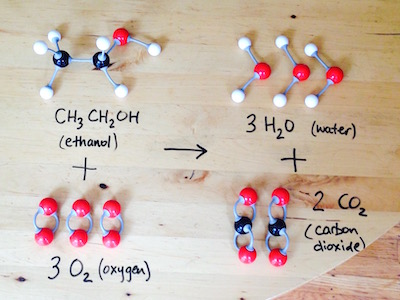 CH3 CH2OH
(ethanol)
+
3 O2 (oxygen)
→
3 H2O (water)
+
2 CO2
(carbon
dioxide)